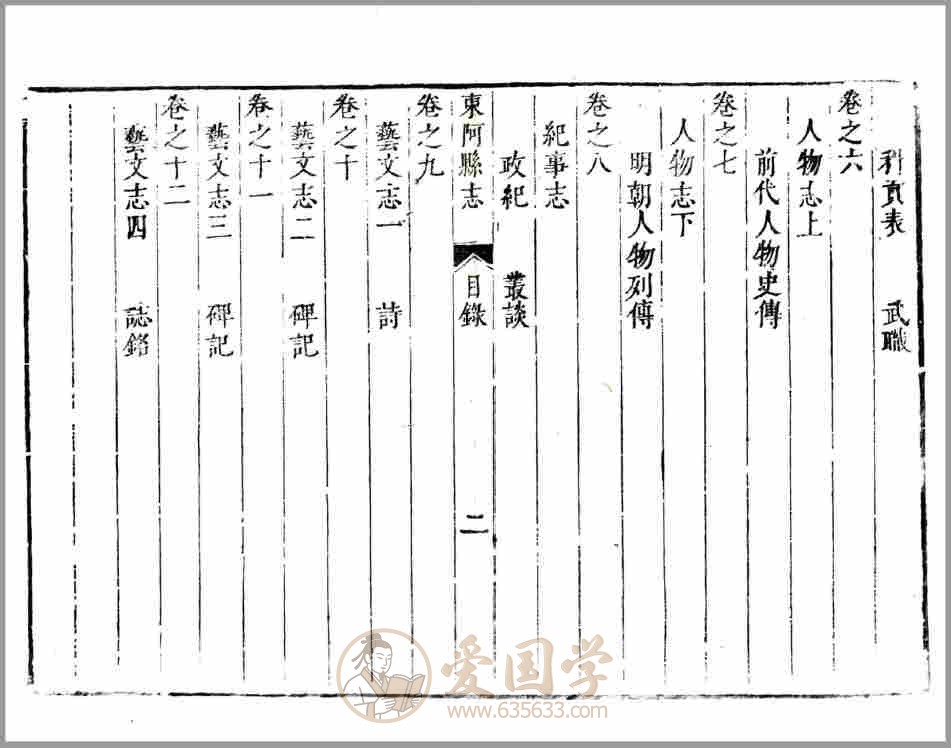 科貢表　武職
卷之六
人物志上
前代人物史傳
卷之七
人物志下
明朝人物列傳
卷之八
紀事志
政紀　叢談
東阿縣志　目錄　二
卷之九
藝文志一　詩
卷之十
藝文志二　碑記
卷之十一
藝文志三　碑記
卷之十二
藝文志四　誌銘
爱国学
www.635633.com